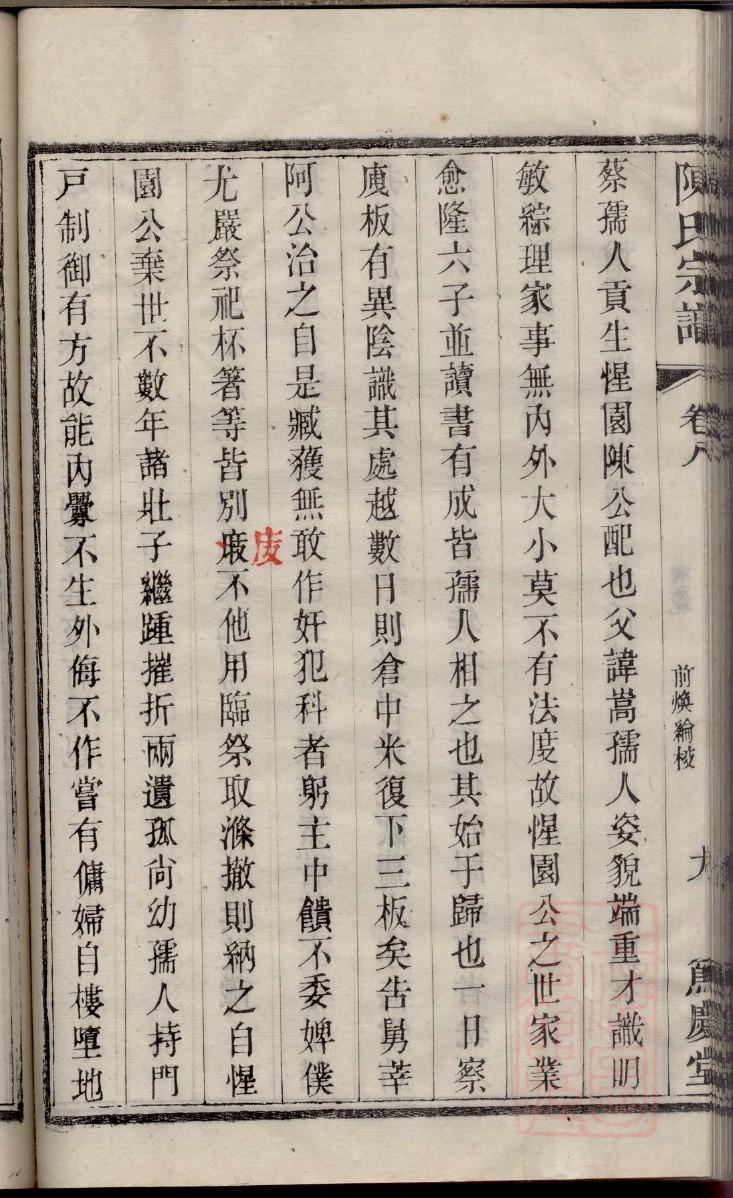 陳氏宗譜
卷八
前煥綸梭
九
篤慶堂
蔡孺人貢生惺園陳公配也父諱嵩孺人姿貌端重才識明
敏綜理家事無內外大小莫不有法度故惺園公之世家業
愈隆六子並讀書有成皆孺人相之也其始于歸也一日察
庾板有異陰識其處越數日則倉中米復下三板矣告舅莘
阿公治之自是臧獲無敢作奸犯科者躬主中饋不委婢僕
尤嚴祭祀杯箸等皆別庋不他用臨祭取滌撤則納之自惺
庋
園公棄世不數年諸壯子繼踵摧折兩遺孤尙幼孺人持門
戸制御有方故能內釁不生外侮不作嘗有傭婦自樓墮地